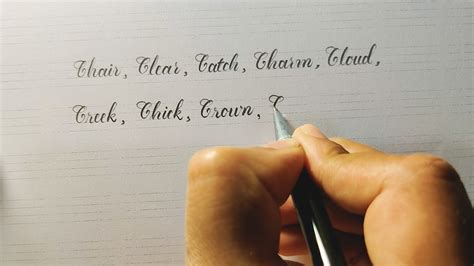 Chair, Clear, Catch, Charm, Cloud,
Creek, Chick, Crown, C